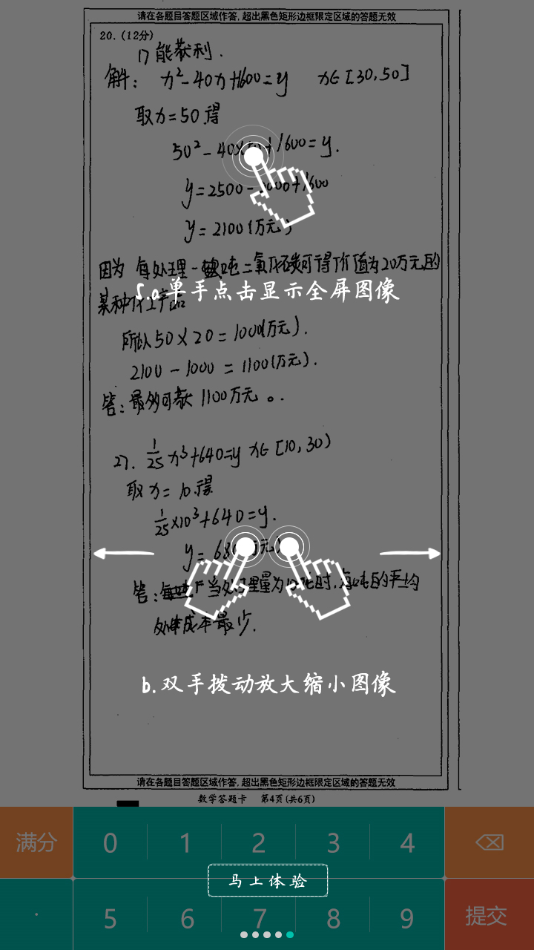 请在各题目答题区域作答,超出黑色矩形边框限定区域的答题无效
20.(12分)
1)能获利.
解: x²-40x+1600=y x∈[30,50]
取x=50得
50²-40×50+1600=y.
y=2500-2000+1600
y=2100(万元)
因为 每处理一吨二氧化碳可得价值为20万元的
某种化工产品
5.a.单手点击显示全屏图像
所以50×20=1000(万元).
2100-1000=1100(万元).
答:最多可获1100万元。
2). 1/25x³+640=y x∈[10,30)
取x=10.得
1/25×10³+640=y.
y=68
答: 当处理量为 时,每吨的平均
成本最少.
b.双手拨动放大缩小图像
请在各题目答题区域作答,超出黑色矩形边框限定区域的答题无效
数学答题卡 第4页(共6页)
满分 0 1 2 3 4
马上体验
. 5 6 7 8 9 提交